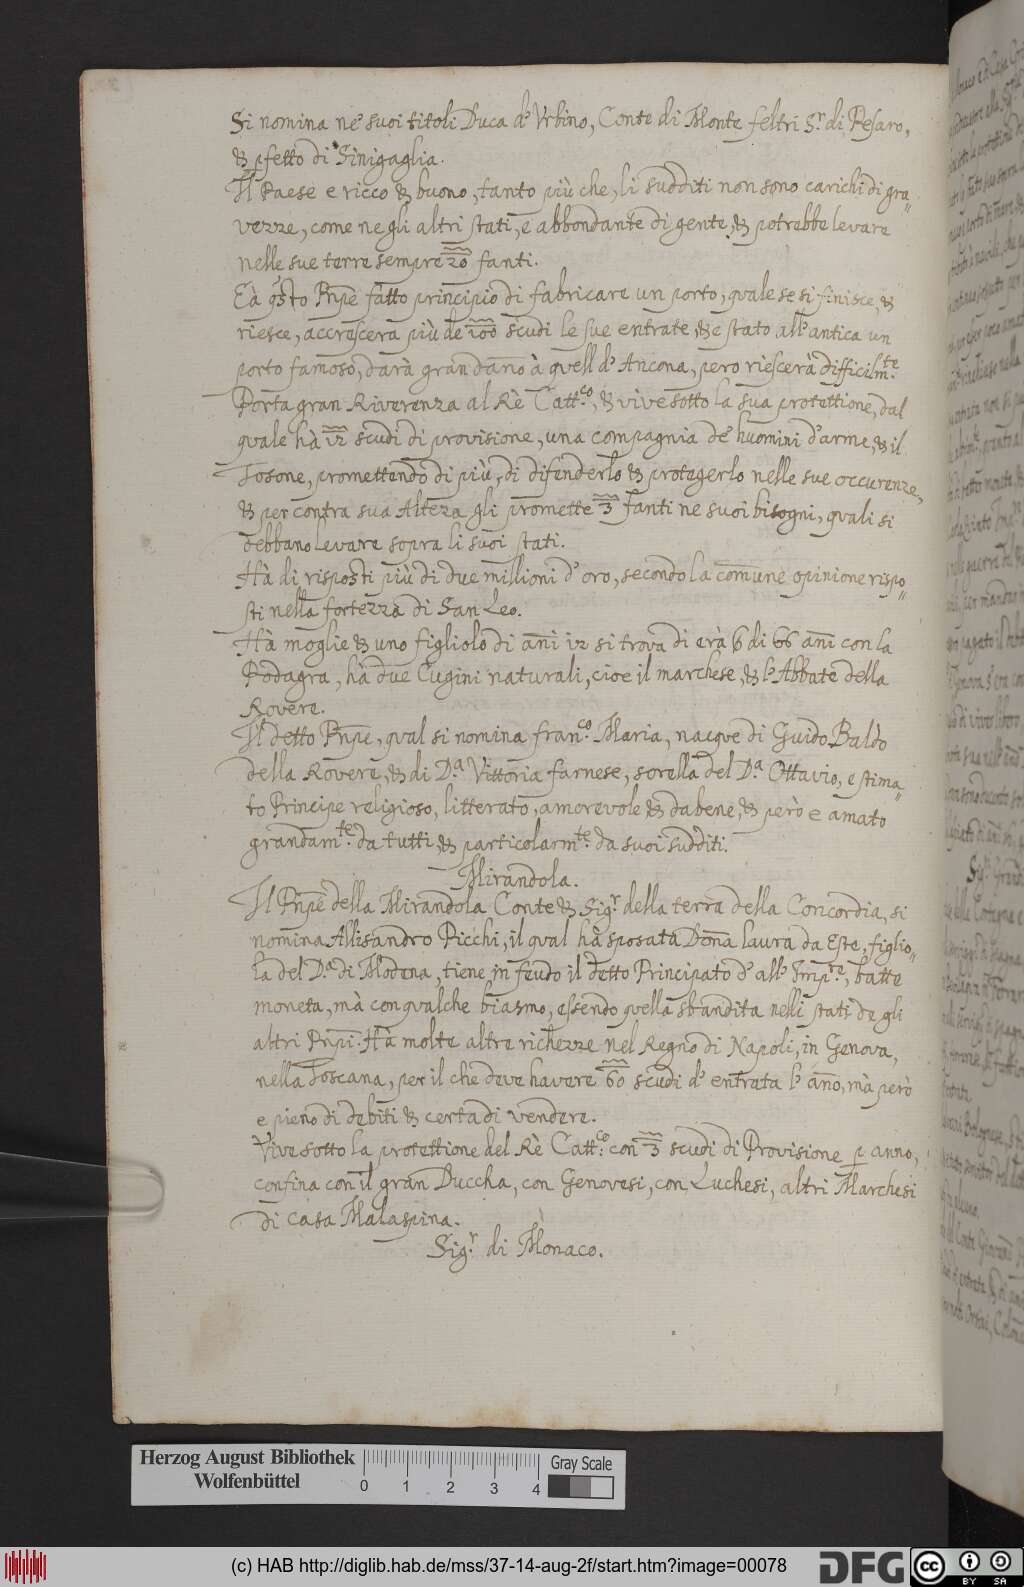 Si nomina ne suoi titoli Duca d' Vrbino, Conte di Monte feltri S.r di Pesaro,
& pfetto di Sinigaglia.
Il Paese e ricco & buono, tanto più che, li sudditi non sono carichi di gra„
vezze, come ne gli altri stati, e abbondante di gente, & potrebbe levare
nelle sue terre sempre 20 fanti.
Eà q̃sto Pn̄pe fatto principio di fabricare un porto, quale se si finisce, &
riesce, accrescera più de 100 scudi le sue entrate, & e stato all'antica un
porto famoso, darà gran dano à quell d' Ancona, pero riescerà difficilm.te
Porta gran Riverenza al Rè Catt.co, & vive sotto la sua protettione, dal
quale hà 12 scudi di provisione, una compagnia de huomini d'arme, & il
Tosone, promettendo di più, di difenderlo & protegerlo nelle sue occurenze,
& per contra sua Alteza gli promette 3 fanti ne suoi bisogni, quali si
debbano levare sopra li suoi stati.
Hà di risposti più di due millioni d' oro, secondo la comune opinione rispo„
sti nella fortezza di San Leo.
Hà moglie & uno figliolo di an̄i 12 si trova di età 6 di 66 an̄i con la
Podagra, hà due Cugini naturali, cioe il marchese, & l' Abbate della
Rovere.
Il detto Pn̄pe, qual si nomina fran.co Maria, nacque di Guido Baldo
della Rovere, & di D.a Vittoria farnese, sorella del D.a Ottavio, e stima„
to Principe religioso, litterato, amorevole & dabene, & però e amato
grandam.te da tutti, & particolarm.te da suoi sudditi.
Mirandola.
Il Pn̄pe della Mirandola Conte & Sig.r della terra della Concordia, si
nomina Allisandro Picchi, il qual hà sposata Don̄a laura da Este, figlio„
la del D.a di Modena, tiene in feudo il detto Principato d' all' Imp.re, batte
moneta, mà con qualche biazmo, essendo quella sbandita nelli stati de gli
altri Pn̄pi. Hà molte altre richezze nel Regno di Napoli, in Genova,
nella Toscana, per il che deve havere 60 scudi d' entrata l' an̄o, mà però
e pieno di debiti & certa di vendere.
Vive sotto la protettione del Rè Catt.co con 3 scudi di Provisione p anno,
confina con il gran Duccha, con Genovesi, con Luchesi, altri Marchesi
di casa Malaspina.
Sig.r di Monaco.
Herzog August Bibliothek
Wolfenbüttel
0 1 2 3 4
Gray Scale
(c) HAB http://diglib.hab.de/mss/37-14-aug-2f/start.htm?image=00078
DFG
cc
BY SA